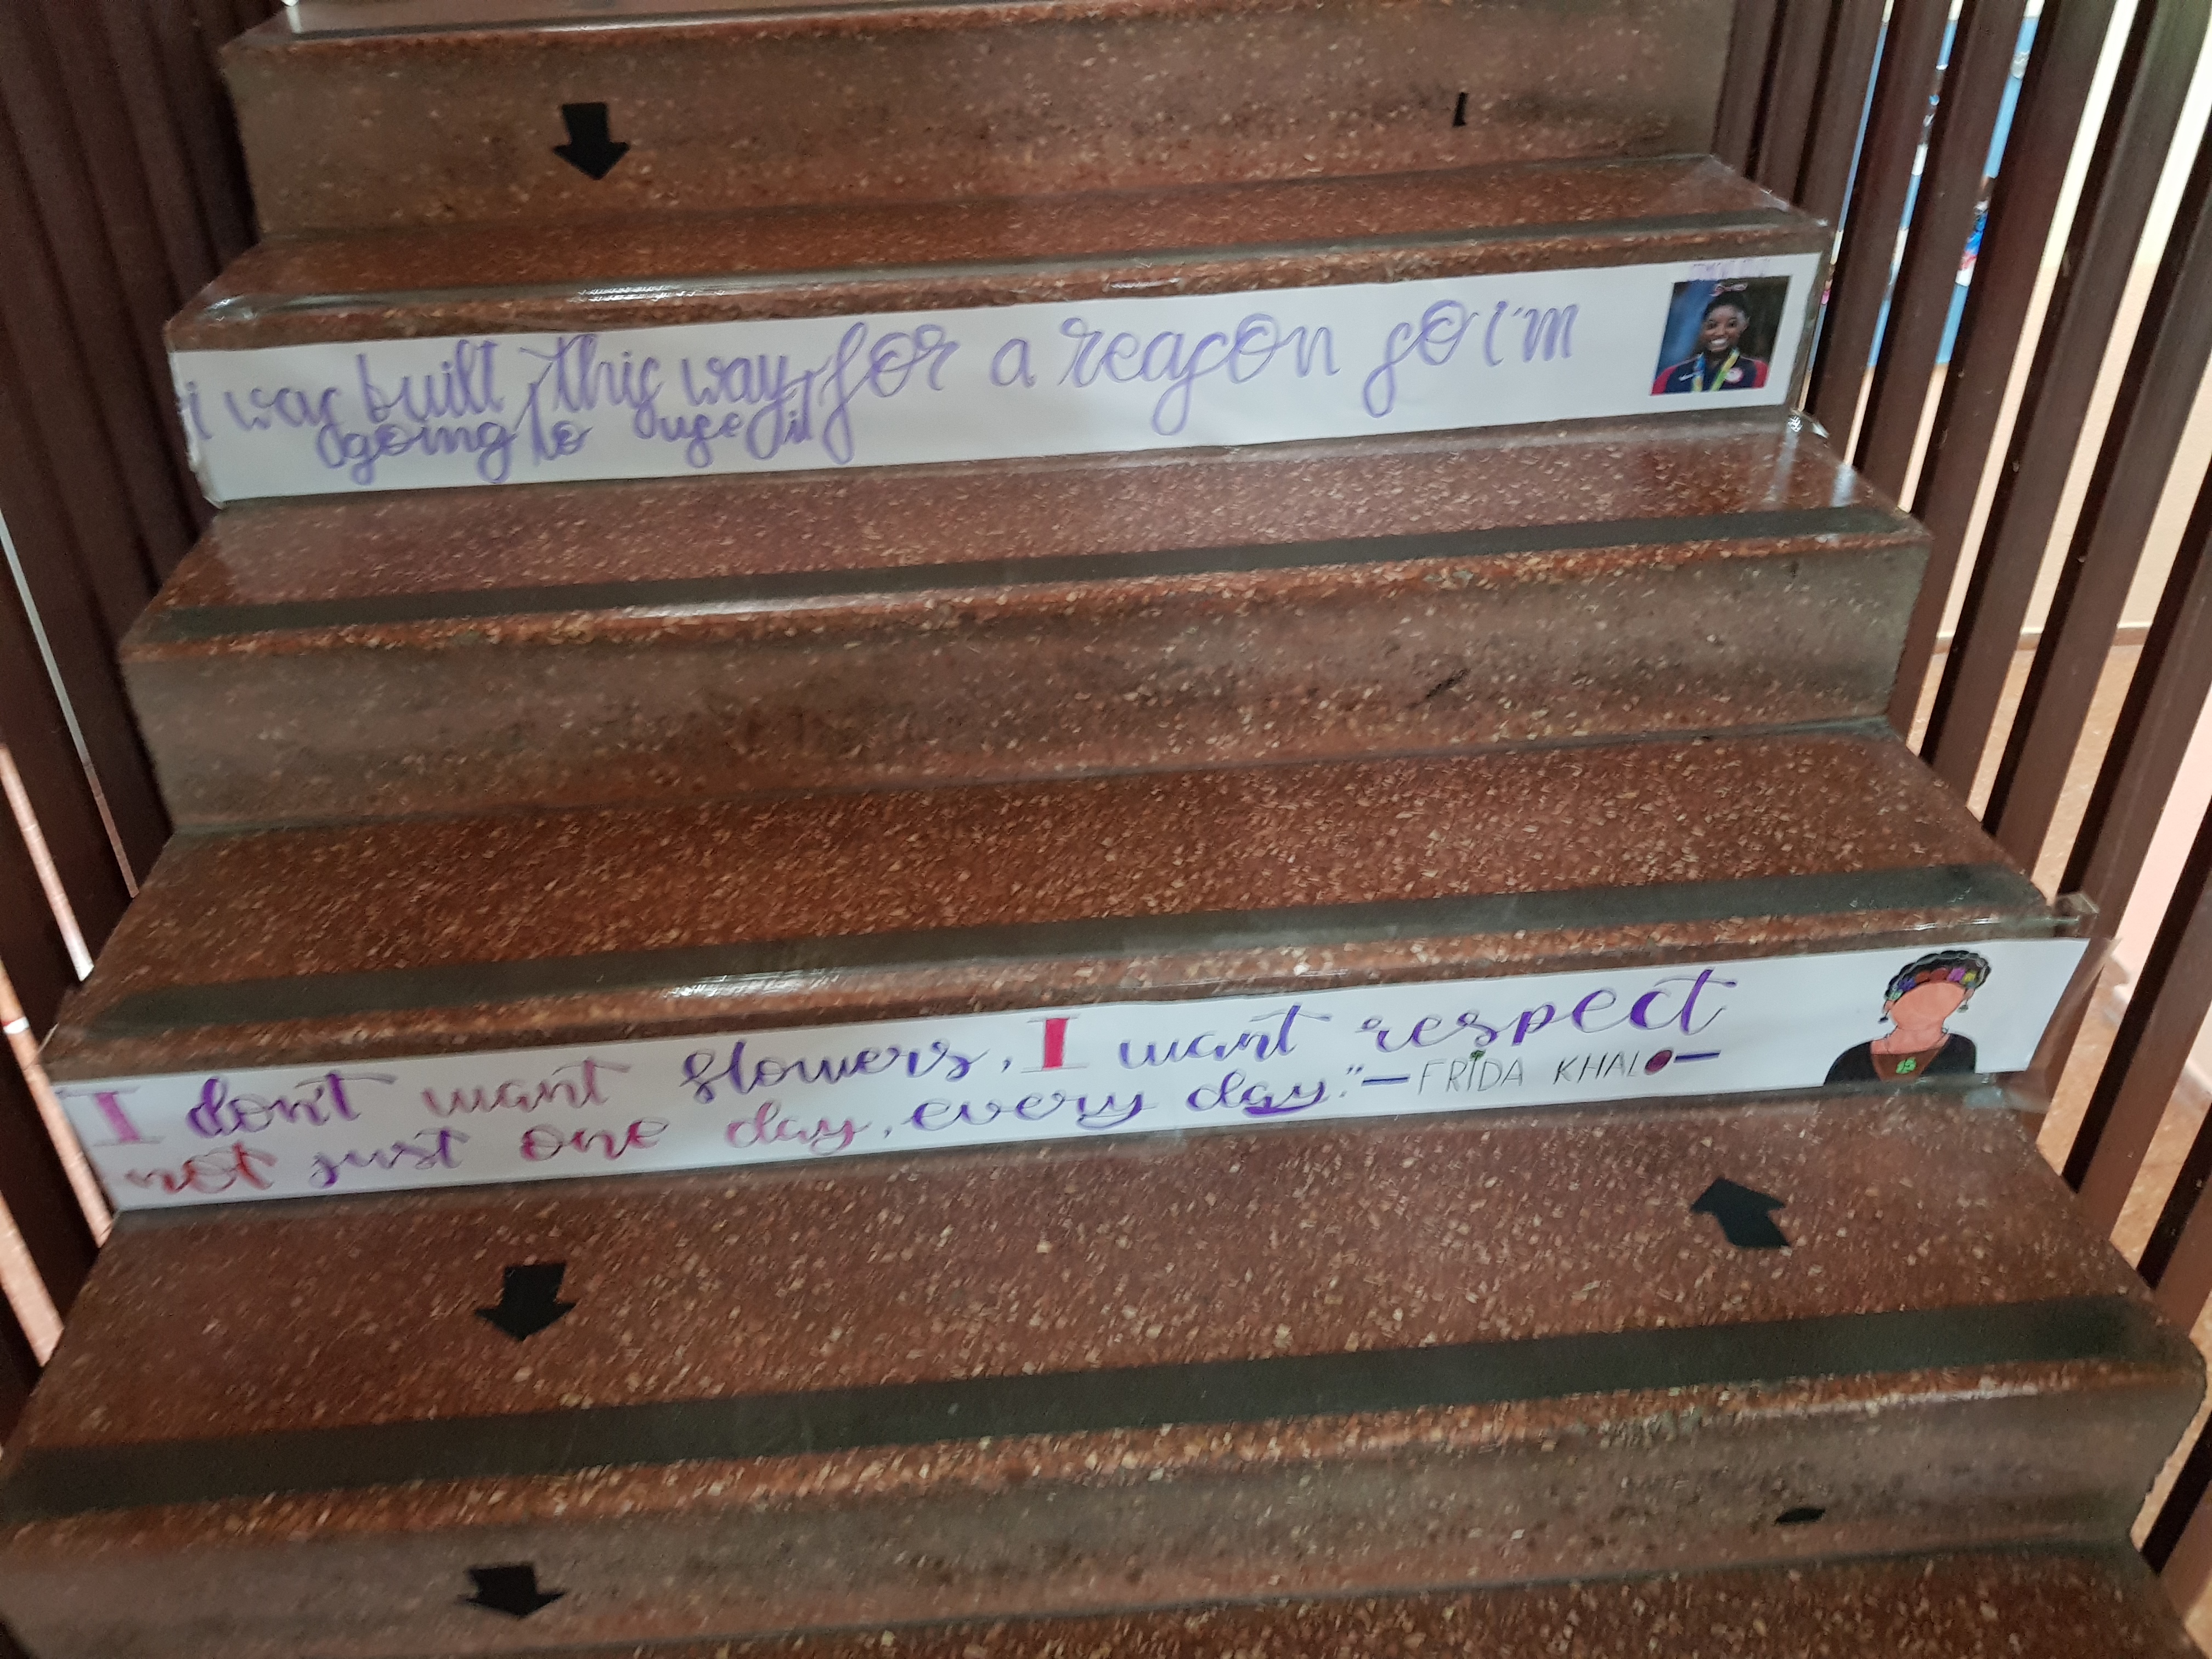 i was built this way for a reason so i'm
going to use it
I don't want flowers, I want respect
not just one day, every day."—FRIDA KHALO—